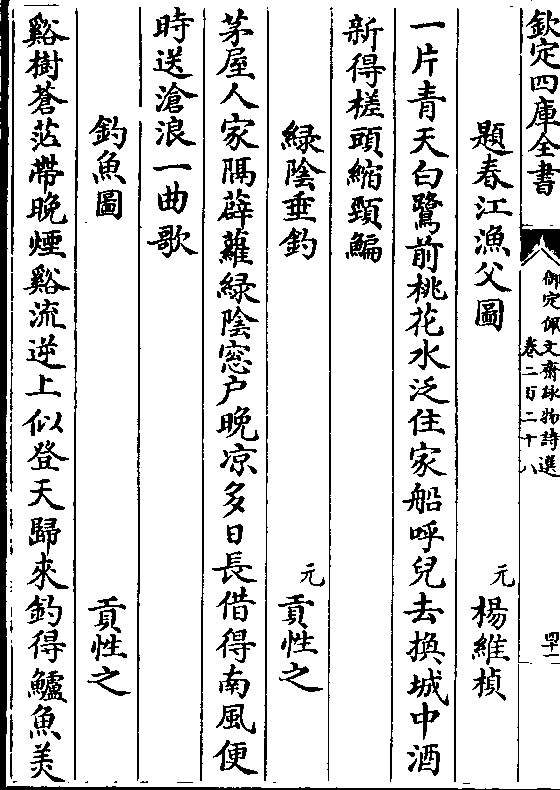 欽定四庫全書
御定佩文齋詠物詩選
卷二百二十八
四十一
題春江漁父圖
元
楊維楨
一片青天白鷺前桃花水泛住家船呼兒去換城中酒
新得槎頭縮頸鯿
綠陰垂釣
元
貢性之
茅屋人家隔薜蘿綠陰窓户晚凉多日長借得南風便
時送滄浪一曲歌
釣魚圖
貢性之
谿樹蒼茫帶晚煙谿流逆上似登天歸來釣得鱸魚美